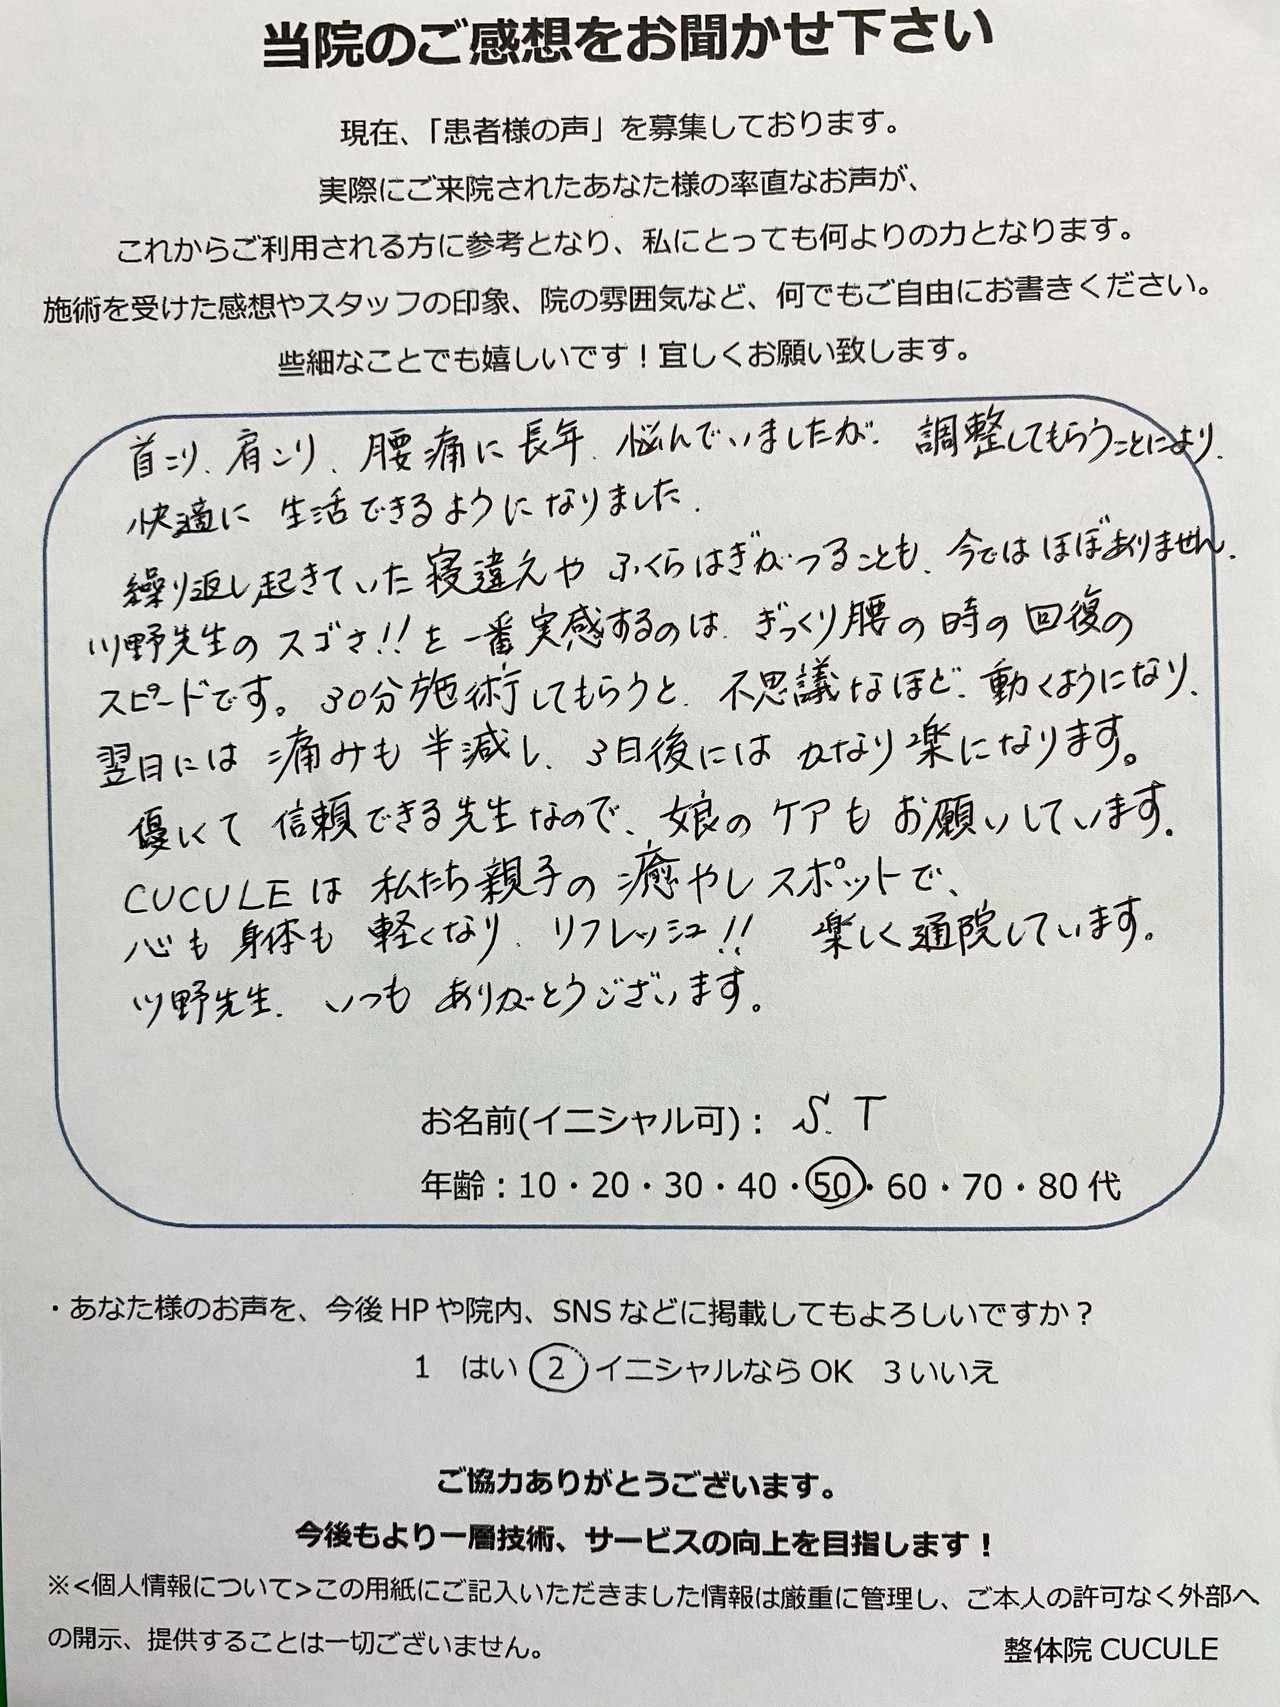 当院のご感想をお聞かせ下さい
現在、「患者様の声」を募集しております。
実際にご来院されたあなた様の率直なお声が、
これからご利用される方に参考となり、私にとっても何よりの力となります。
施術を受けた感想やスタッフの印象、院の雰囲気など、何でもご自由にお書きください。
些細なことでも嬉しいです！宜しくお願い致します。
首こり、肩こり、腰痛に長年、悩んでいましたが、調整してもらうことにより、
快適に生活できるようになりました。
繰り返し起きていた寝違えやふくらはぎがつることも、今ではほぼありません。
川野先生のスゴさ!!を一番実感するのは、ぎっくり腰の時の回復の
スピードです。30分施術してもらうと、不思議なほど、動くようになり、
翌日には痛みも半減し、3日後にはかなり楽になります。
優しくて信頼できる先生なので、娘のケアもお願いしています。
CUCULEは私たち親子の癒やしスポットで、
心も身体も軽くなり、リフレッシュ!! 楽しく通院しています。
川野先生、いつもありがとうございます。
お名前(イニシャル可)：S.T
年齢：10・20・30・40・50・60・70・80代
・あなた様のお声を、今後HPや院内、SNSなどに掲載してもよろしいですか？
1 はい 2 イニシャルならOK 3いいえ
ご協力ありがとうございます。
今後もより一層技術、サービスの向上を目指します！
※<個人情報について>この用紙にご記入いただきました情報は厳重に管理し、ご本人の許可なく外部へ
の開示、提供することは一切ございません。 整体院 CUCULE